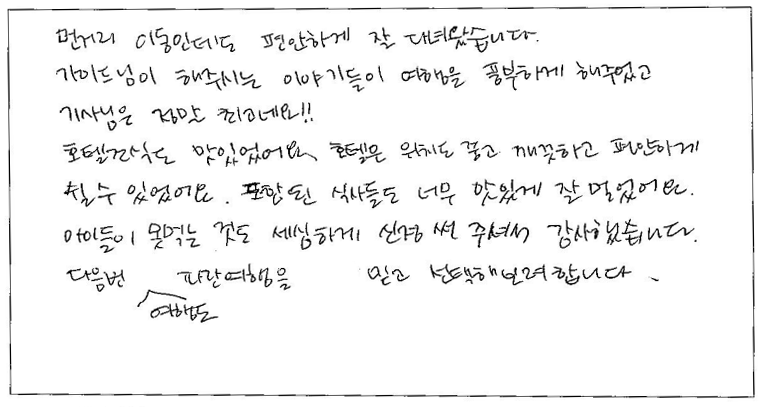 먼거리 이동인데도 편안하게 잘 다녀왔습니다.
가이드님이 해주시는 이야기들이 여행을 풍부하게 해주었고
기사님은 정말 최고네요!!
호텔조식도 맛있었어요, 호텔은 위치도 좋고 깨끗하고 편안하게
쉴수 있었어요. 포함된 식사들도 너무 맛있게 잘 먹었어요.
아이들이 못먹는 것도 세심하게 신경 써 주셔서 감사했습니다.
다음번 여행도 파란여행을 믿고 선택해보려합니다.